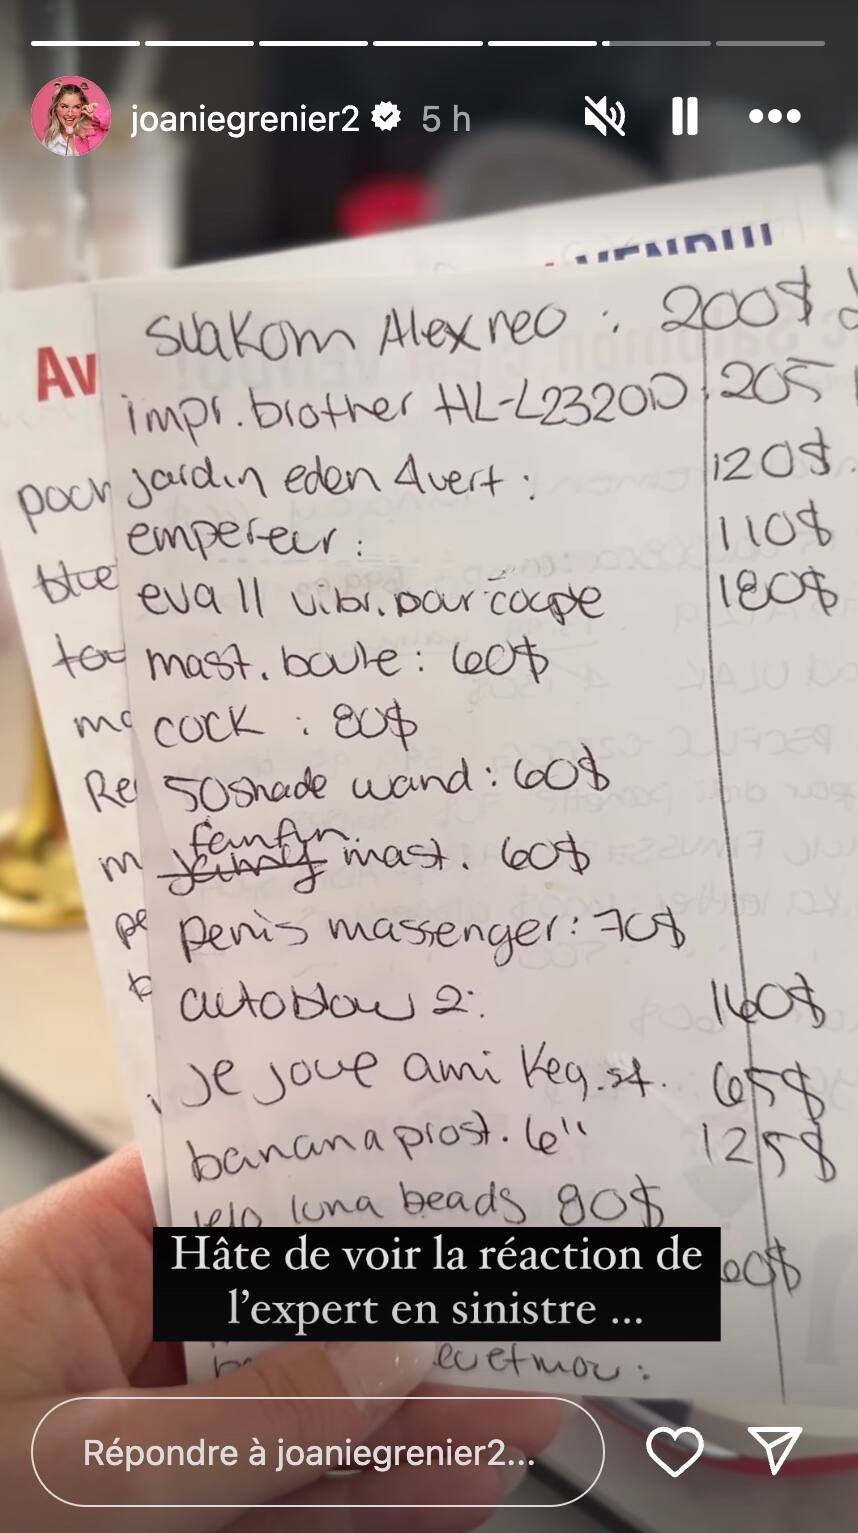 joaniegrenier2 5 h
VENDU
Av
svakom Alex neo : 200$
impr. brother HL-L2320D : 205
jardin eden 4vert : 120$
empereur : 110$
eva II vibr. pour coupe 180$
mast. boule : 60$
cock : 80$
50shade wand : 60$
funfun.
mast. 60$
penis massenger : 70$
autoblow 2 : 140$
je joue ami Keg. st. 65$
banana prost. 6" 125$
lelo luna beads 80$
60$
poch
blue
tou
mo
Re
m
pe
b
Hâte de voir la réaction de
l'expert en sinistre ...
et mou :
Répondre à joaniegrenier2...